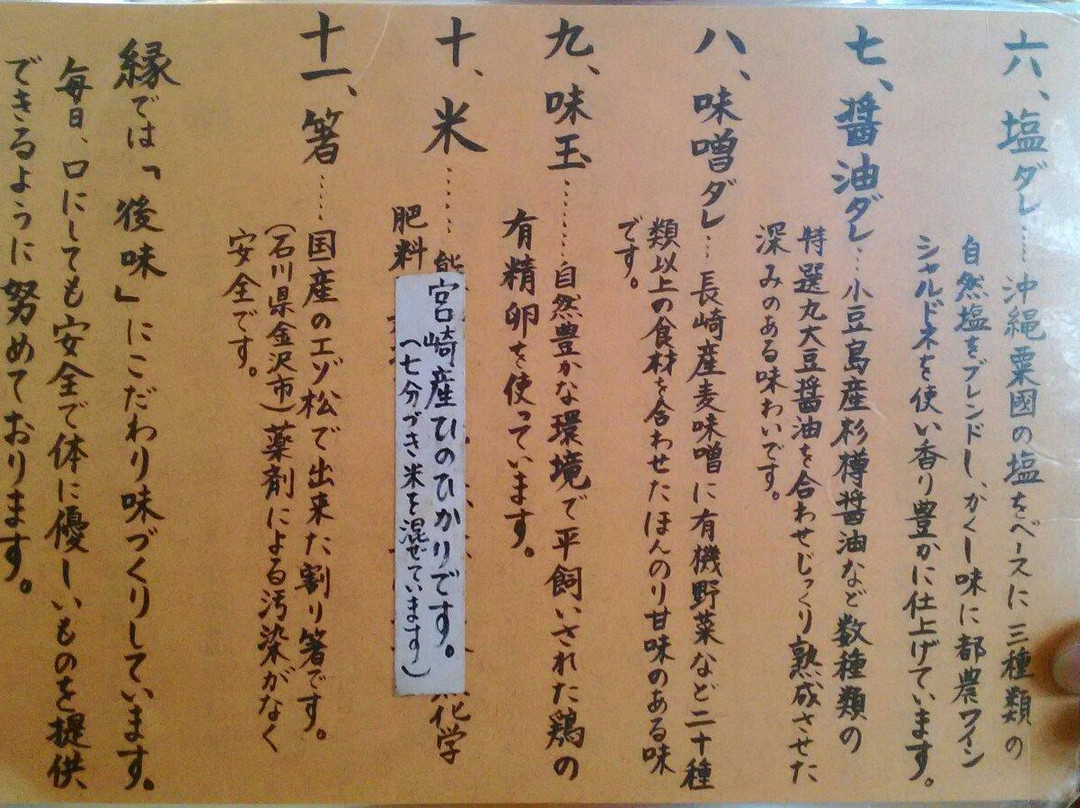 六、塩ダレ……沖縄粟國の塩をベースに三種類の
自然塩をブレンドし、かくし味に都農ワイン
シャルドネを使い香り豊かに仕上げています。
七、醤油ダレ…小豆島産杉樽醤油など数種類の
特選丸大豆醤油を合わせじっくり熟成させた
深みのある味わいです。
八、味噌ダレ…長崎産麦味噌に有機野菜など二十種
類以上の食材を合わせたほんのり甘味のある味
です。
九、味玉………自然豊かな環境で平飼いされた鶏の
有精卵を使っています。
十、米……能
宮崎産ひのひかりです。
(七分づき米を混ぜています)
化学
肥料
十一、箸……国産のエゾ松で出来た割り箸です。
(石川県金沢市)薬剤による汚染がなく
安全です。
縁では「後味」にこだわり味づくりしています。
毎日、口にしても安全で体に優しいものを提供
できるように努めております。